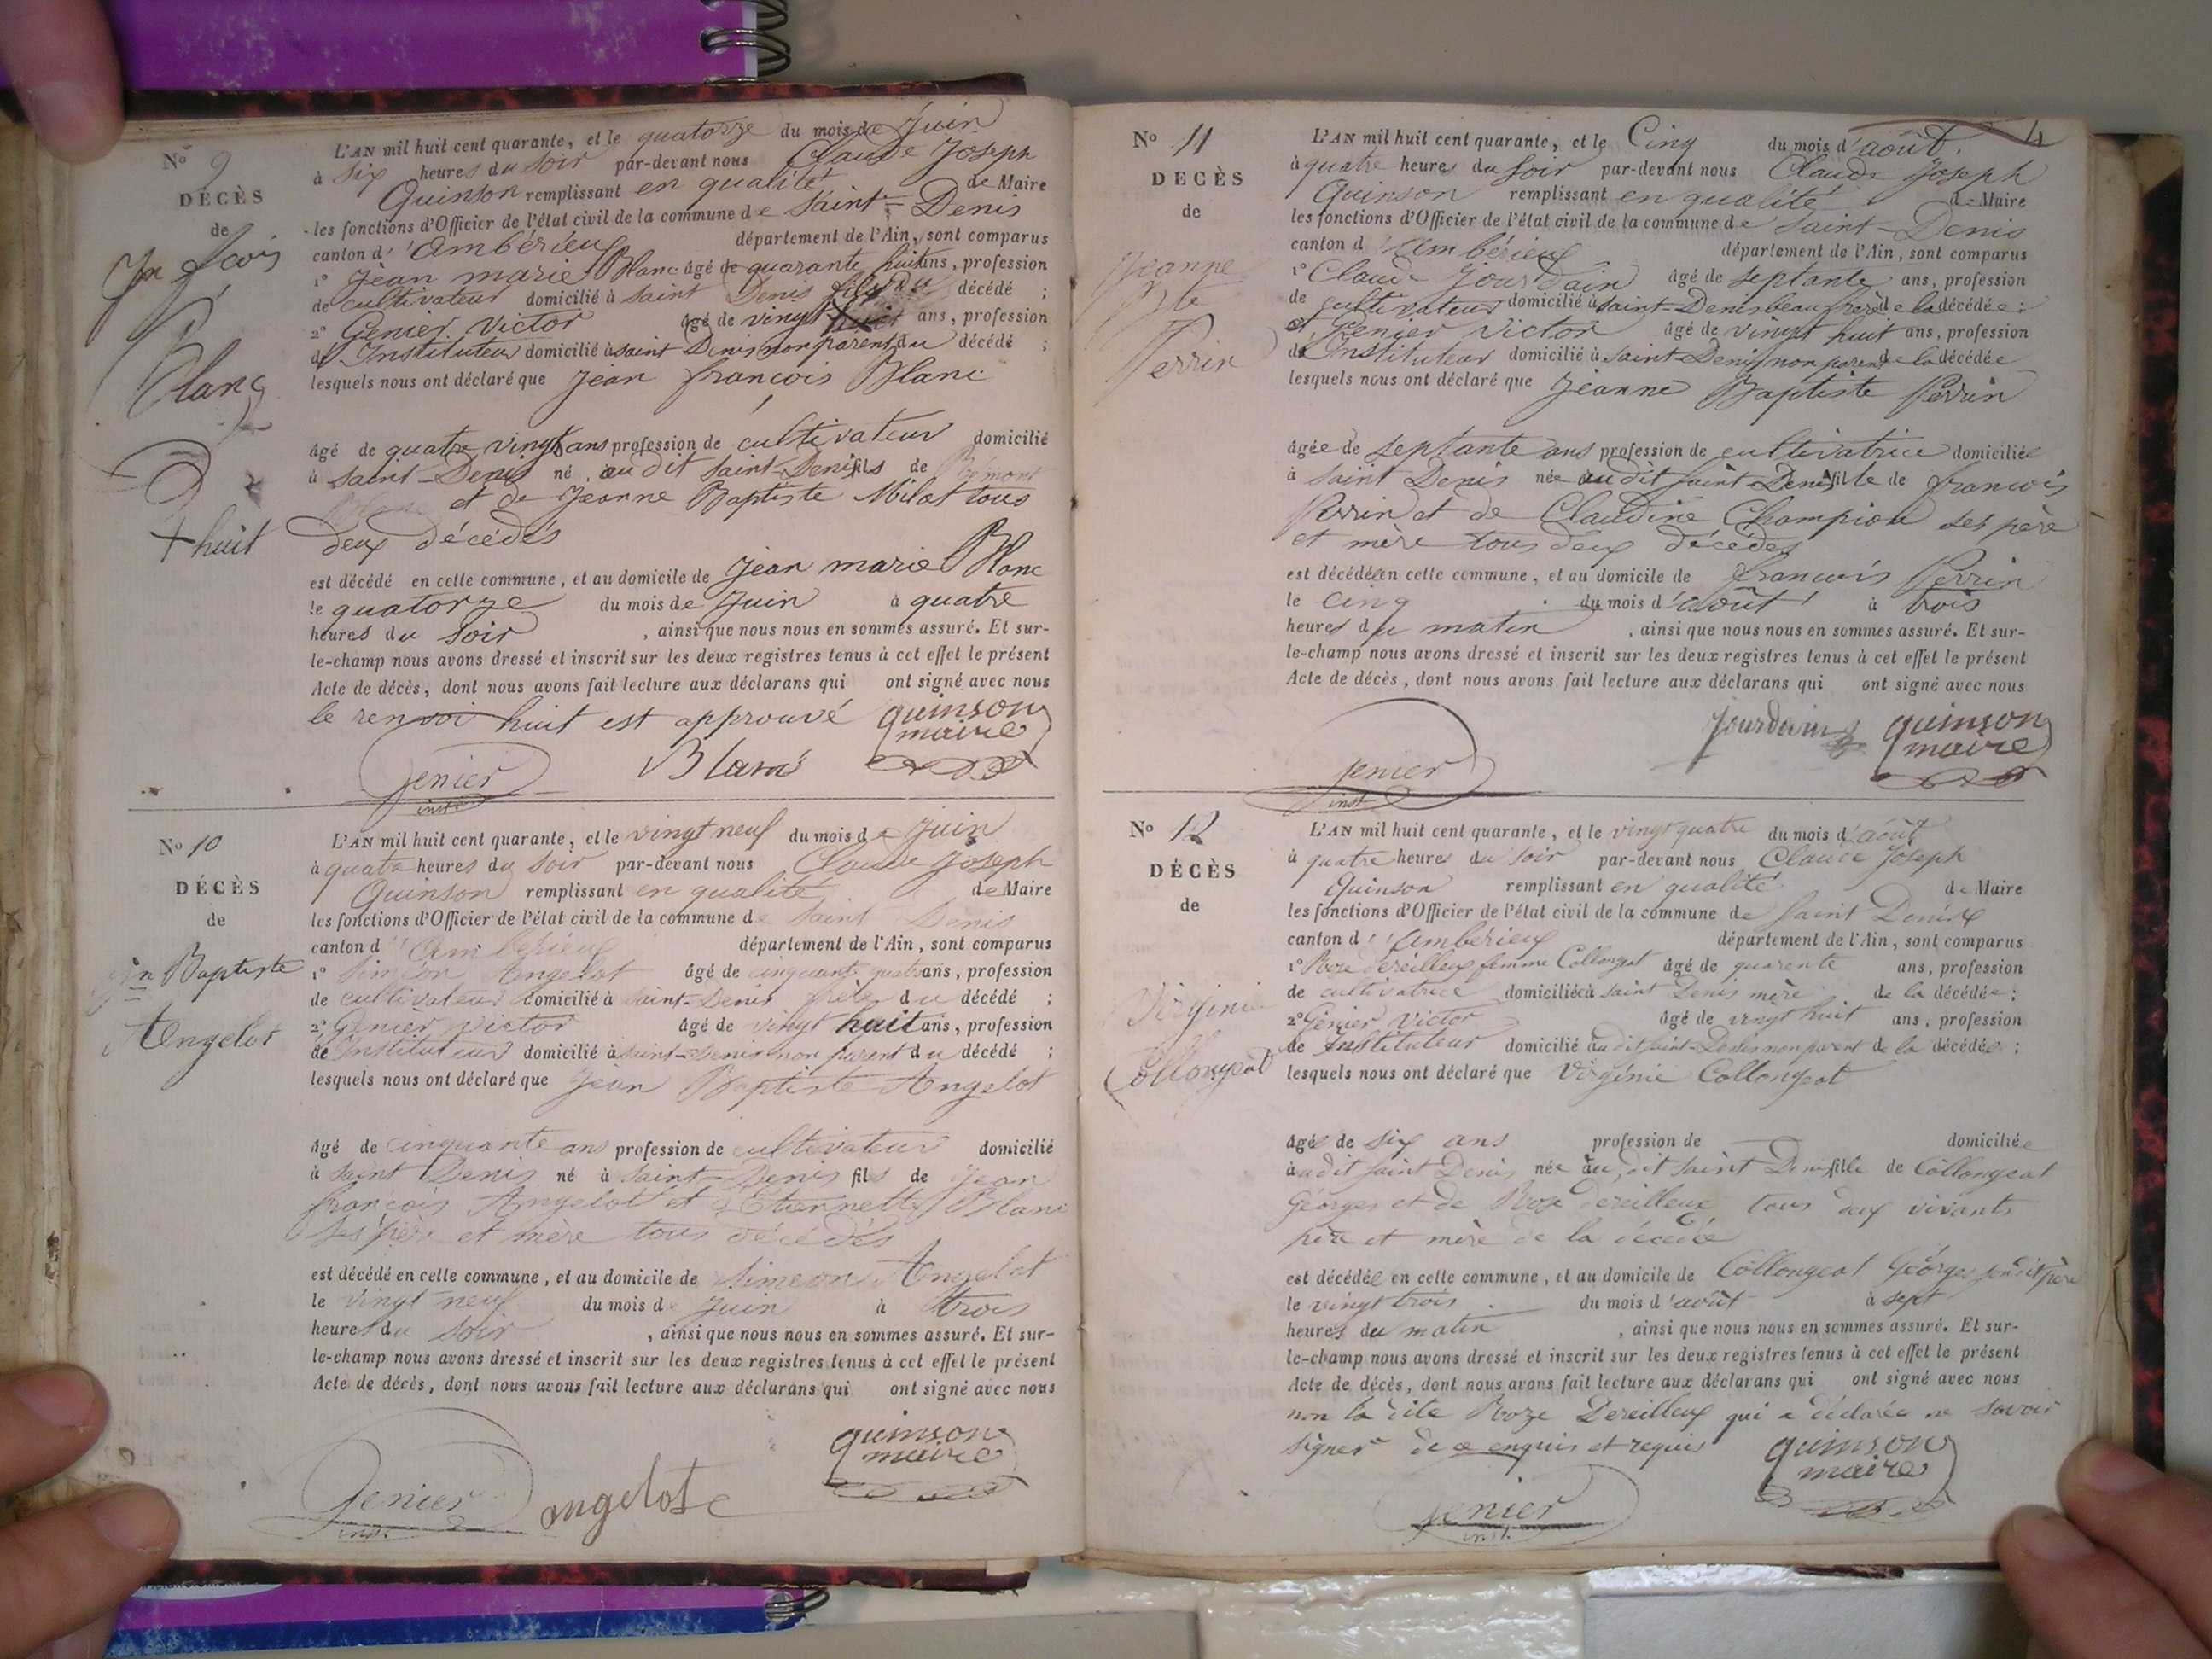 No 9
DÉCÈS
de
Jn fcois
Blanc
+ huit
L'AN mil huit cent quarante, et le quatorze du mois de Juin
à Six heures du Soir par-devant nous Claude Joseph
Quinson remplissant en qualité de Maire
les fonctions d'Officier de l'état civil de la commune de Saint-Denis
canton d'Ambérieux département de l'Ain, sont comparus
1° Jean marie Blanc âgé de quarante huit ans, profession
de cultivateur domicilié à Saint Denis fils du décédé ;
2° Genier Victor âgé de vingt + ans, profession
d'Instituteur domicilié à saint Denis non parent du décédé ;
lesquels nous ont déclaré que Jean françois Blanc
âgé de quatre vingt ans profession de cultivateur domicilié
à saint-Denis né audit Saint-Denis fils de
Blanc et de Jeanne Baptiste Milat tous
deux décédés
est décédé en cette commune, et au domicile de Jean marie Blanc
le quatorze du mois de Juin à quatre
heures du Soir , ainsi que nous nous en sommes assuré. Et sur-
le-champ nous avons dressé et inscrit sur les deux registres tenus à cet effet le présent
Acte de décès, dont nous avons fait lecture aux déclarans qui ont signé avec nous
le renvoi huit est approuvé quinson
maire
Genier Blanc
inst.
No 10
DÉCÈS
de
Jn Baptiste
Angelot
L'AN mil huit cent quarante, et le vingt neuf du mois de Juin
à quatre heures du Soir par-devant nous Claude Joseph
Quinson remplissant en qualité de Maire
les fonctions d'Officier de l'état civil de la commune de Saint Denis
canton d'Ambérieux département de l'Ain, sont comparus
1° Siméon Angelot âgé de cinquante quatre ans, profession
de cultivateur domicilié à Saint-Denis frère du décédé ;
2° Genier Victor âgé de vingt huit ans, profession
de Instituteur domicilié à saint-Denis non parent du décédé ;
lesquels nous ont déclaré que Jean Baptiste Angelot
âgé de cinquante ans profession de cultivateur domicilié
à Saint Denis né à Saint-Denis fils de Jean
françois Angelot et d'Etiennette Blanc
ses père et mère tous décédés
est décédé en cette commune, et au domicile de Simeon Angelot
le vingt neuf du mois de Juin à trois
heures du Soir , ainsi que nous nous en sommes assuré. Et sur-
le-champ nous avons dressé et inscrit sur les deux registres tenus à cet effet le présent
Acte de décès, dont nous avons fait lecture aux déclarans qui ont signé avec nous
quinson
maire
Genier angelot
inst.
4
No 11
DECÈS
de
Jeanne
Bte
Perrin
L'AN mil huit cent quarante, et le Cinq du mois d'août.
à quatre heures du Soir par-devant nous Claude Joseph
Quinson remplissant en qualité de Maire
les fonctions d'Officier de l'état civil de la commune de Saint-Denis
canton d'Ambérieux département de l'Ain, sont comparus
1° Claude Jourdain âgé de septante ans, profession
de cultivateur domicilié à Saint-Denis beau frère de la décédée ;
2° Genier Victor âgé de vingt huit ans, profession
d'Instituteur domicilié à Saint-Denis non parent de la décédée
lesquels nous ont déclaré que Jeanne Baptiste Perrin
âgée de septante ans profession de cultivatrice domiciliée
à Saint Denis née audit Saint-Denis fille de françois
Perrin et de Claudine Champion ses père
et mère tous deux décédés
est décédée en cette commune, et au domicile de françois Perrin
le cinq du mois d'août à trois
heures du matin , ainsi que nous nous en sommes assuré. Et sur-
le-champ nous avons dressé et inscrit sur les deux registres tenus à cet effet le présent
Acte de décès, dont nous avons fait lecture aux déclarans qui ont signé avec nous
Jourdain quinson
maire
Genier
inst
No 12
DÉCÈS
de
Virginie
Collongeat
L'AN mil huit cent quarante, et le vingt quatre du mois d'août
à quatre heures du Soir par-devant nous Claude Joseph
Quinson remplissant en qualité de Maire
les fonctions d'Officier de l'état civil de la commune de Saint Denis
canton d'Ambérieux département de l'Ain, sont comparus
1° Roze Dereilleux femme Collongeat âgé de quarente ans, profession
de cultivatrice domiciliée à saint Denis mère de la décédée ;
2° Genier Victor âgé de vingt huit ans, profession
de Instituteur domicilié audit saint-Denis non parent de la décédée ;
lesquels nous ont déclaré que Virginie Collongeat
âgée de six ans profession de domiciliée
à audit Saint Denis née audit Saint Denis fille de Collongeat
Georges et de Roze Dereilleux tous deux vivants
père et mère de la décédée
est décédée en cette commune, et au domicile de Collongeat Georges son dit père
le vingt trois du mois d'août à sept
heures du matin , ainsi que nous nous en sommes assuré. Et sur-
le-champ nous avons dressé et inscrit sur les deux registres tenus à cet effet le présent
Acte de décès, dont nous avons fait lecture aux déclarans qui ont signé avec nous
non la dite Roze Dereilleux qui a déclarée ne savoir
signer de ce enquis et requis quinson
maire
Genier
inst.